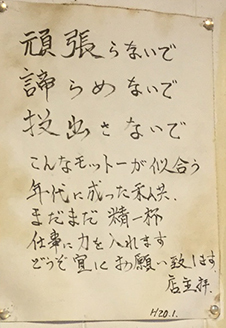 頑張らないで
諦らめないで
投出さないで
こんなモットーが似合う
年代に成った私共.
まだまだ精一杯
仕事に力を入れます
どうぞ宜くお願い致します.
店主拝.
H20.1.